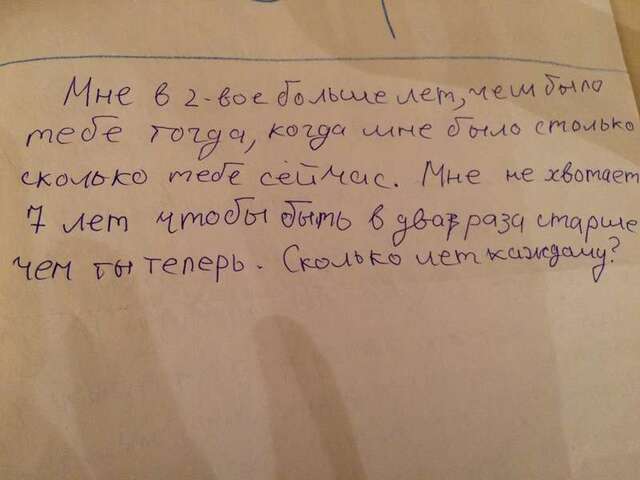 Мне в 2-вое больше лет, чем было
тебе тогда, когда мне было столько
сколько тебе сейчас. Мне не хвотает
7 лет чтобы быть в два раза старше
чем ты теперь. Сколько лет каждому?